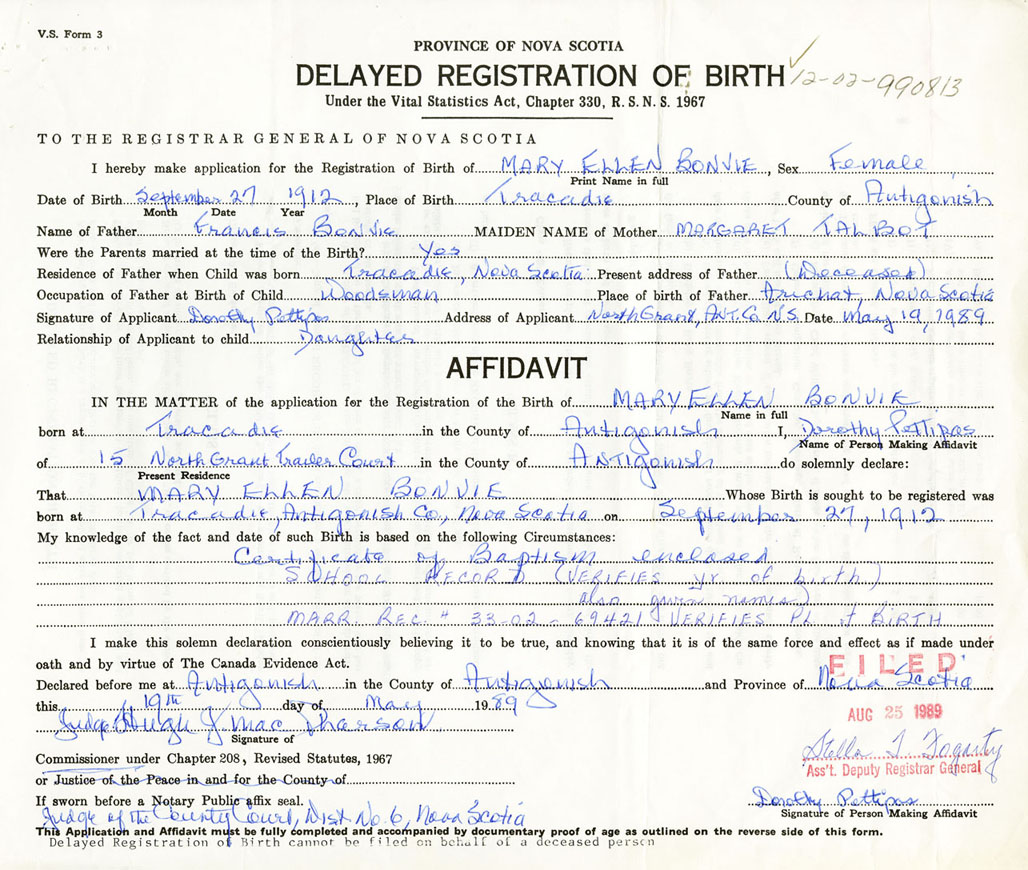 V.S. Form 3
PROVINCE OF NOVA SCOTIA
DELAYED REGISTRATION OF BIRTH ✓12-02-990813
Under the Vital Statistics Act, Chapter 330, R.S.N.S. 1967
TO THE REGISTRAR GENERAL OF NOVA SCOTIA
I hereby make application for the Registration of Birth of MARY ELLEN BONVIE, Sex Female
Print Name in full
Date of Birth September 27 1912, Place of Birth Tracadie County of Antigonish
Month Date Year
Name of Father Francis Bonvie MAIDEN NAME of Mother MARGARET TALBOT
Were the Parents married at the time of the Birth? Yes
Residence of Father when Child was born Tracadie, Nova Scotia Present address of Father (Deceased)
Occupation of Father at Birth of Child Woodsman Place of birth of Father Arichat, Nova Scotia
Signature of Applicant Dorothy Pettipas Address of Applicant North Grant, ANT. Co. N.S. Date May 19, 1989
Relationship of Applicant to child Daughter
AFFIDAVIT
IN THE MATTER of the application for the Registration of the Birth of MARY ELLEN BONVIE
Name in full
born at Tracadie in the County of Antigonish I, Dorothy Pettipas
Name of Person Making Affidavit
of 15 North Grant Trailer Court in the County of ANTIGONISH do solemnly declare:
Present Residence
That MARY ELLEN BONVIE Whose Birth is sought to be registered was
born at Tracadie, Antigonish Co., Nova Scotia on September 27, 1912
My knowledge of the fact and date of such Birth is based on the following Circumstances:
Certificate of Baptism enclosed
SCHOOL RECORD (VERIFIES yr of birth.)
also given names)
MARR. REC. # 33-02-69421 VERIFIES PL of BIRTH
I make this solemn declaration conscientiously believing it to be true, and knowing that it is of the same force and effect as if made under
oath and by virtue of The Canada Evidence Act.
FILED
Declared before me at Antigonish in the County of Antigonish and Province of Nova Scotia
this 19th day of May 1989
AUG 25 1989
Judge Hugh J MacPherson
Signature of
Stella T. Fogarty
Commissioner under Chapter 208, Revised Statutes, 1967
Ass't. Deputy Registrar General
or Justice of the Peace in and for the County of
If sworn before a Notary Public affix seal.
Dorothy Pettipas
Judge of the County Court, Dist No. 6, Nova Scotia
Signature of Person Making Affidavit
This Application and Affidavit must be fully completed and accompanied by documentary proof of age as outlined on the reverse side of this form.
Delayed Registration of Birth cannot be filed on behalf of a deceased person